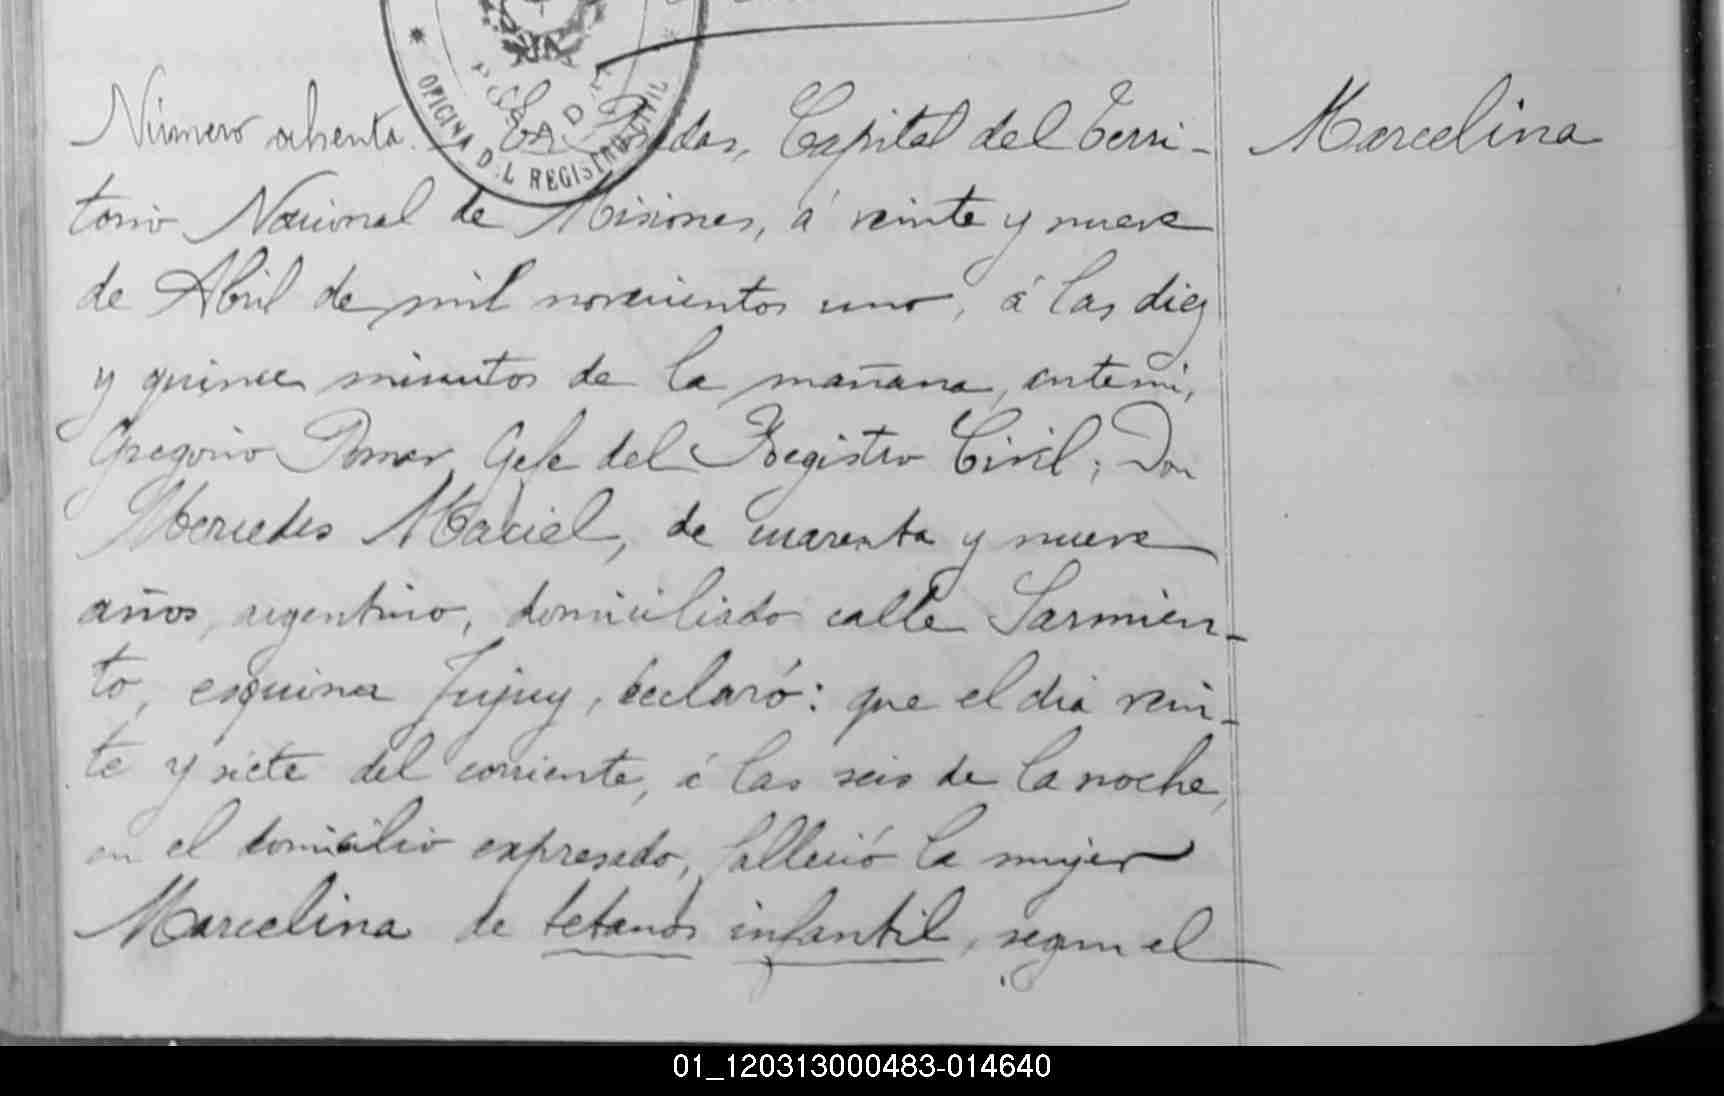 OFICINA DEL REGISTRO CIVIL
POSADAS
Número ochenta. En Posadas, Capital del Terri- Marcelina
torio Nacional de Misiones, á veinte y nueve
de Abril de mil novecientos uno, á las diez
y quince minutos de la mañana, ante mi,
Gregorio Pomar, Gefe del Registro Civil; Don
Mercedes Maciel, de cuarenta y nueve
años, argentino, domiciliado calle Sarmien-
to, esquina Jujuy, declaró: que el dia vein-
te y siete del corriente, á las seis de la noche,
en el domicilio expresado, falleció la mujer
Marcelina de tetanos infantil, segun el
01_120313000483-014640